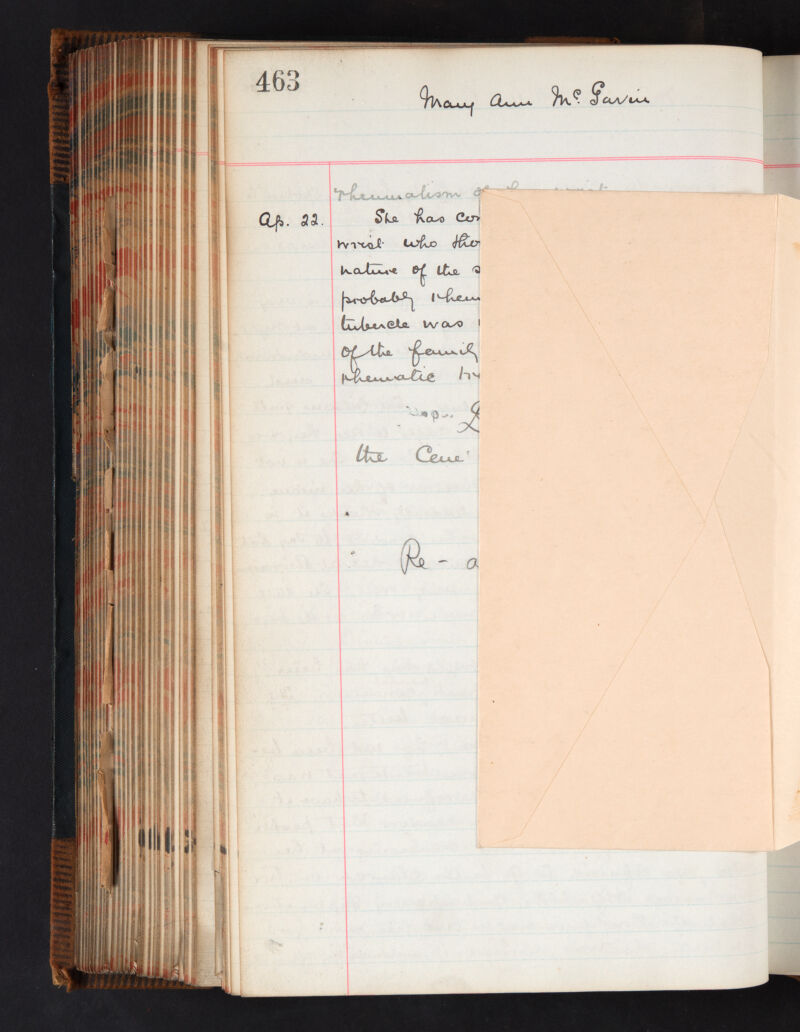 463
Mary Ann McGavin
rheumatism
Ap. 22. She has con
wrist who tho
nature of the s
probably rheum
tubercle was
of the family
rhematic tr
the Cere
Re - a